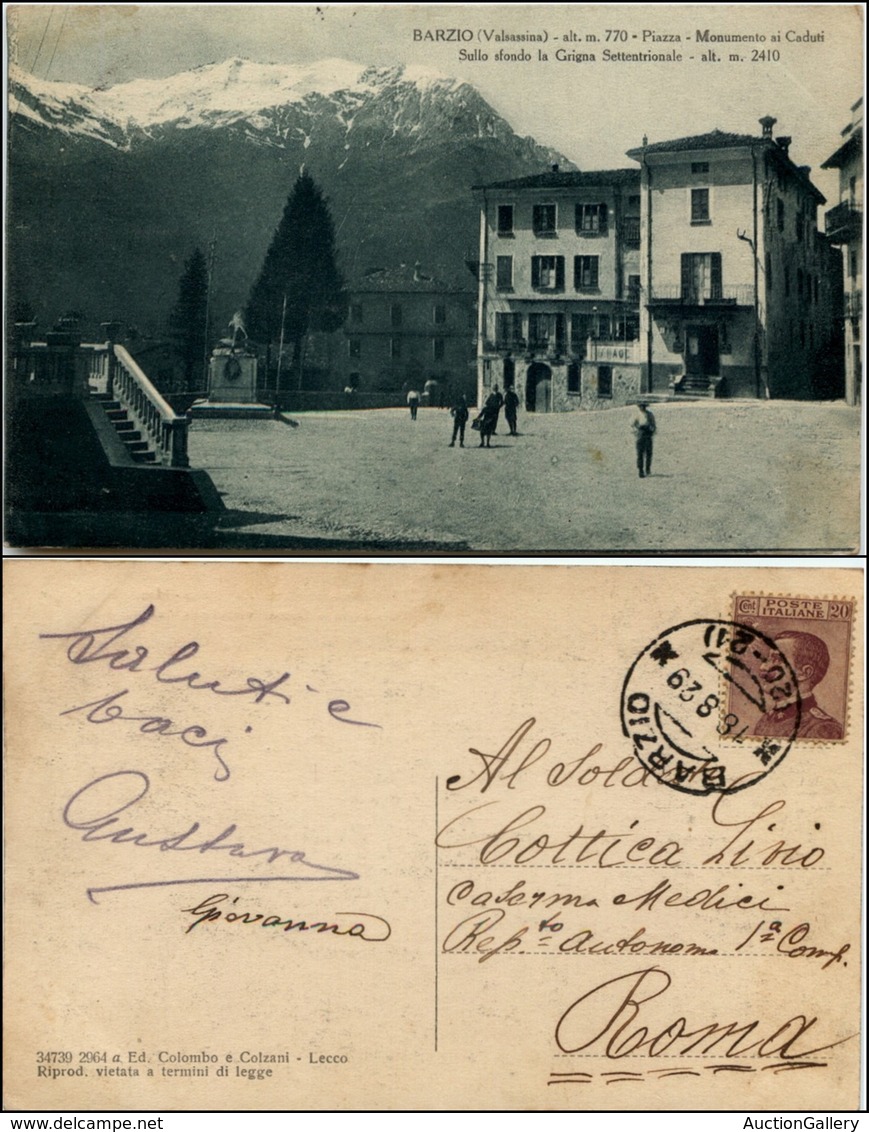 BARZIO (Valsassina) - alt. m. 770 - Piazza - Monumento ai Caduti
Sullo sfondo la Grigna Settentrionale - alt. m. 2410
Saluti e
baci
Gustava
Giovanna
Cent. POSTE ITALIANE 20
BARZIO
18 8 29
(20-21)
Al Soldato
Cottica Livio
Caserma Medici
Rep.to Autonomo 1ª Comp.
Roma
34739 2964 a Ed. Colombo e Colzani - Lecco
Riprod. vietata a termini di legge
AuctionGallery